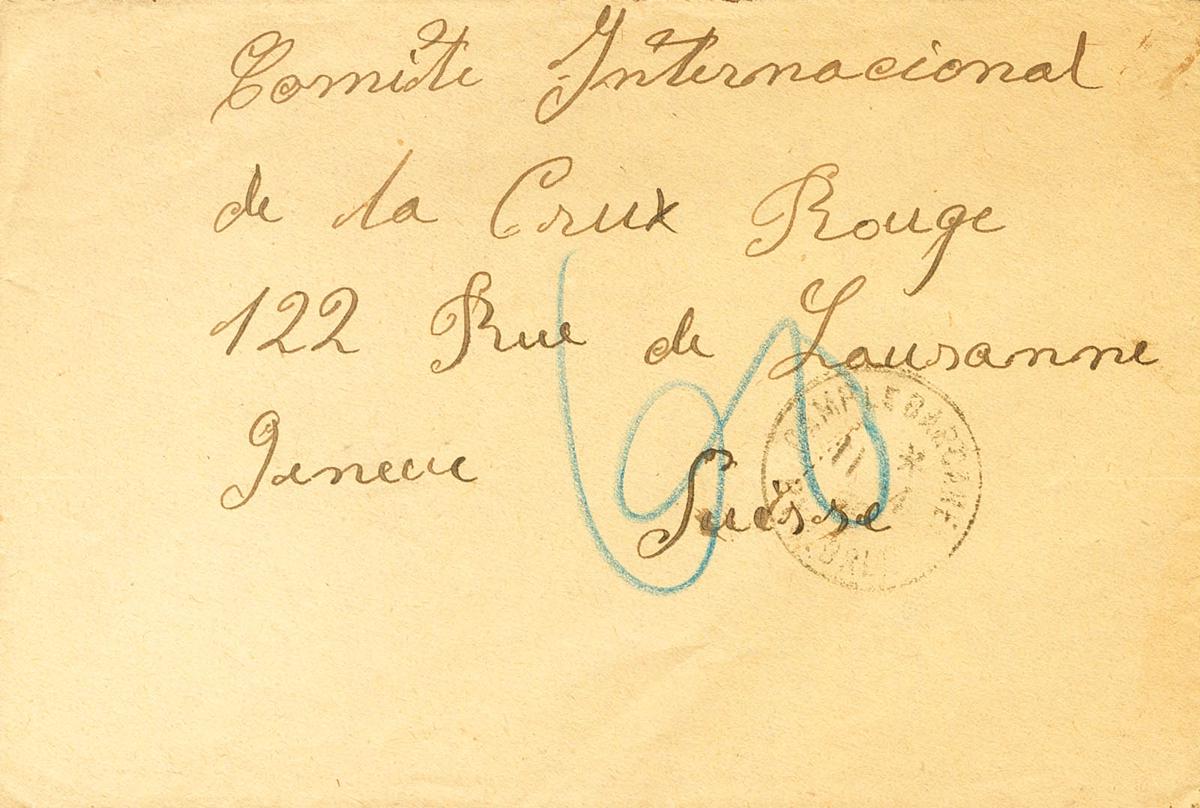 Comite Internacional
de la Crux Rouge
122 Rue de Lausanne
Geneve Suisse
60
CAMP LE BARCARES